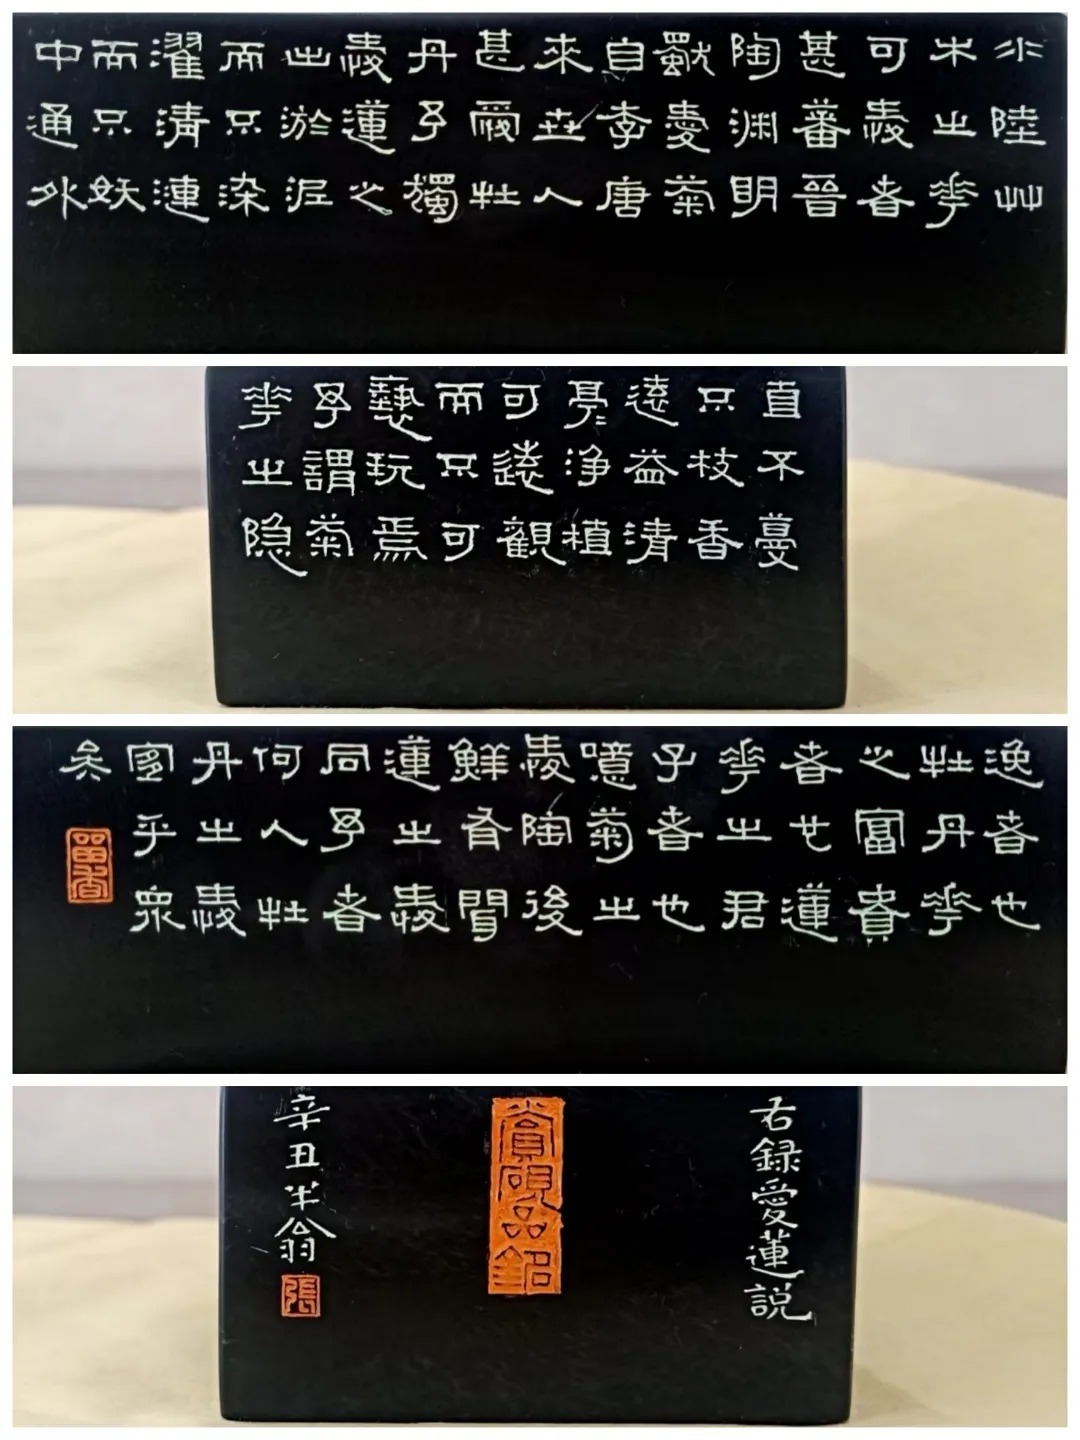 水陸艸
木之花
可愛者
甚蕃晉
陶渊明
獨愛菊
自李唐
來世人
甚愛牡
丹予獨
愛蓮之
出淤泥
而不染
濯清漣
而不妖
中通外
直不蔓
不枝香
遠益清
亭〻淨植
可遠觀
而不可
褻玩焉
予謂菊
花之隐
逸者也
牡丹花
之富貴
者也蓮
花之君
子者也
噫菊之
愛陶後
鮮有聞
蓮之愛
同予者
何人牡
丹之愛
宜乎眾
矣
留香
右録愛蓮説
賞硯品銘
辛丑半翁
張